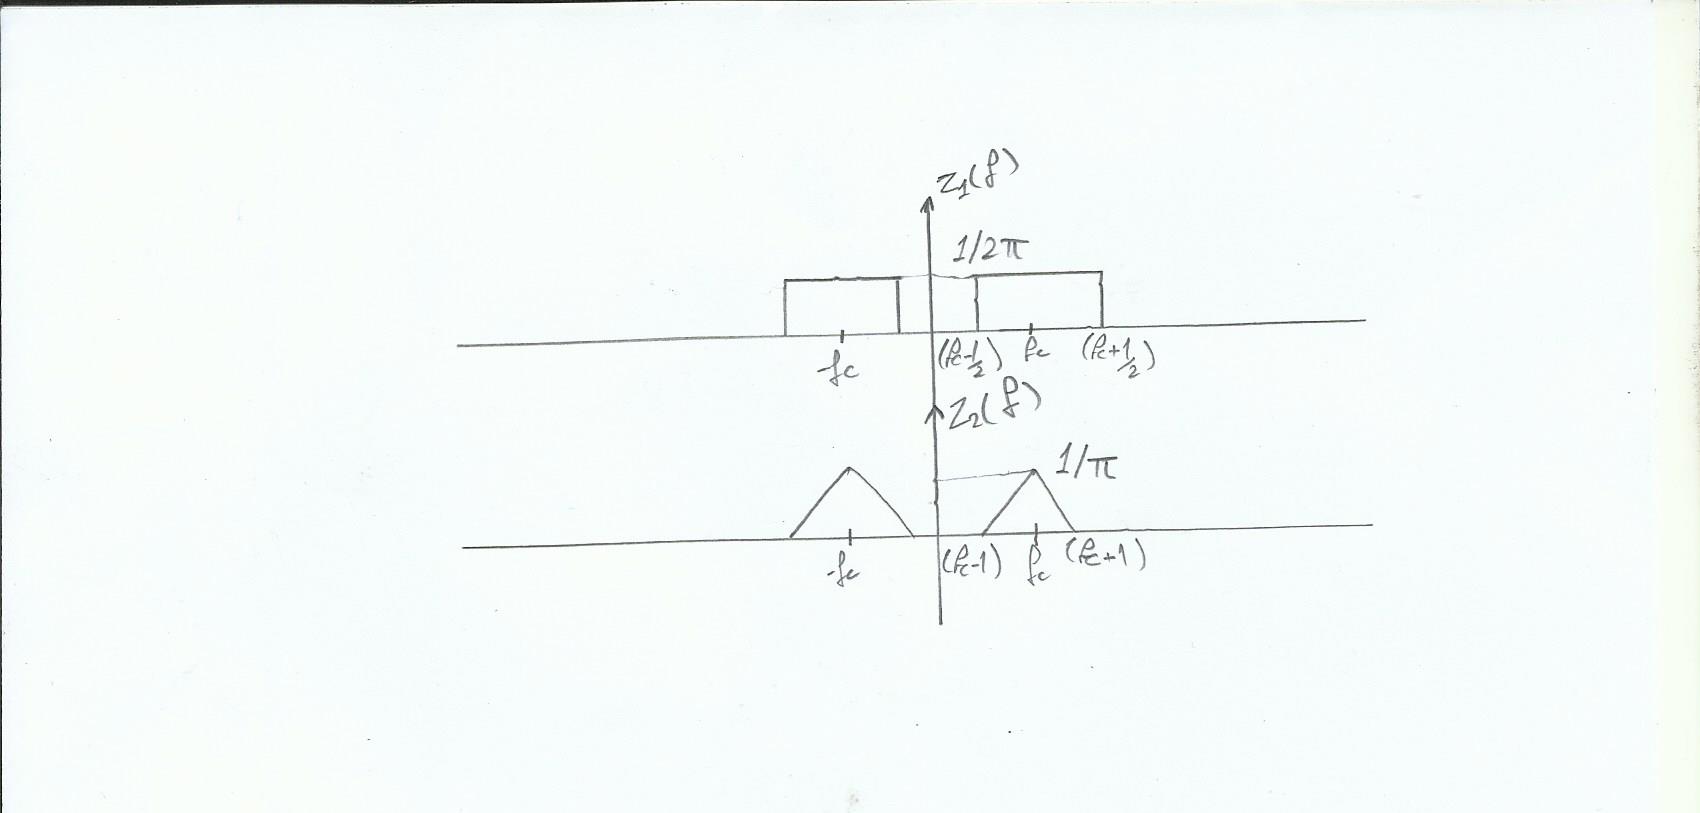 Z1(f)
1/2π
-fc (fc-1/2) fc (fc+1/2)
Z2(f)
1/π
-fc (fc-1) fc (fc+1)